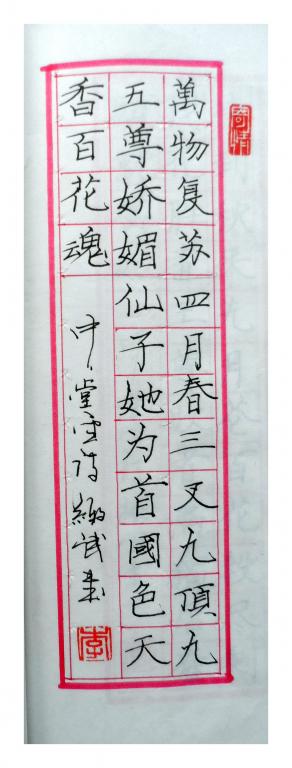 寄情
萬物复苏四月春三叉九頂九
五尊娇媚仙子她为首國色天
香百花魂
中堂雪诗
李